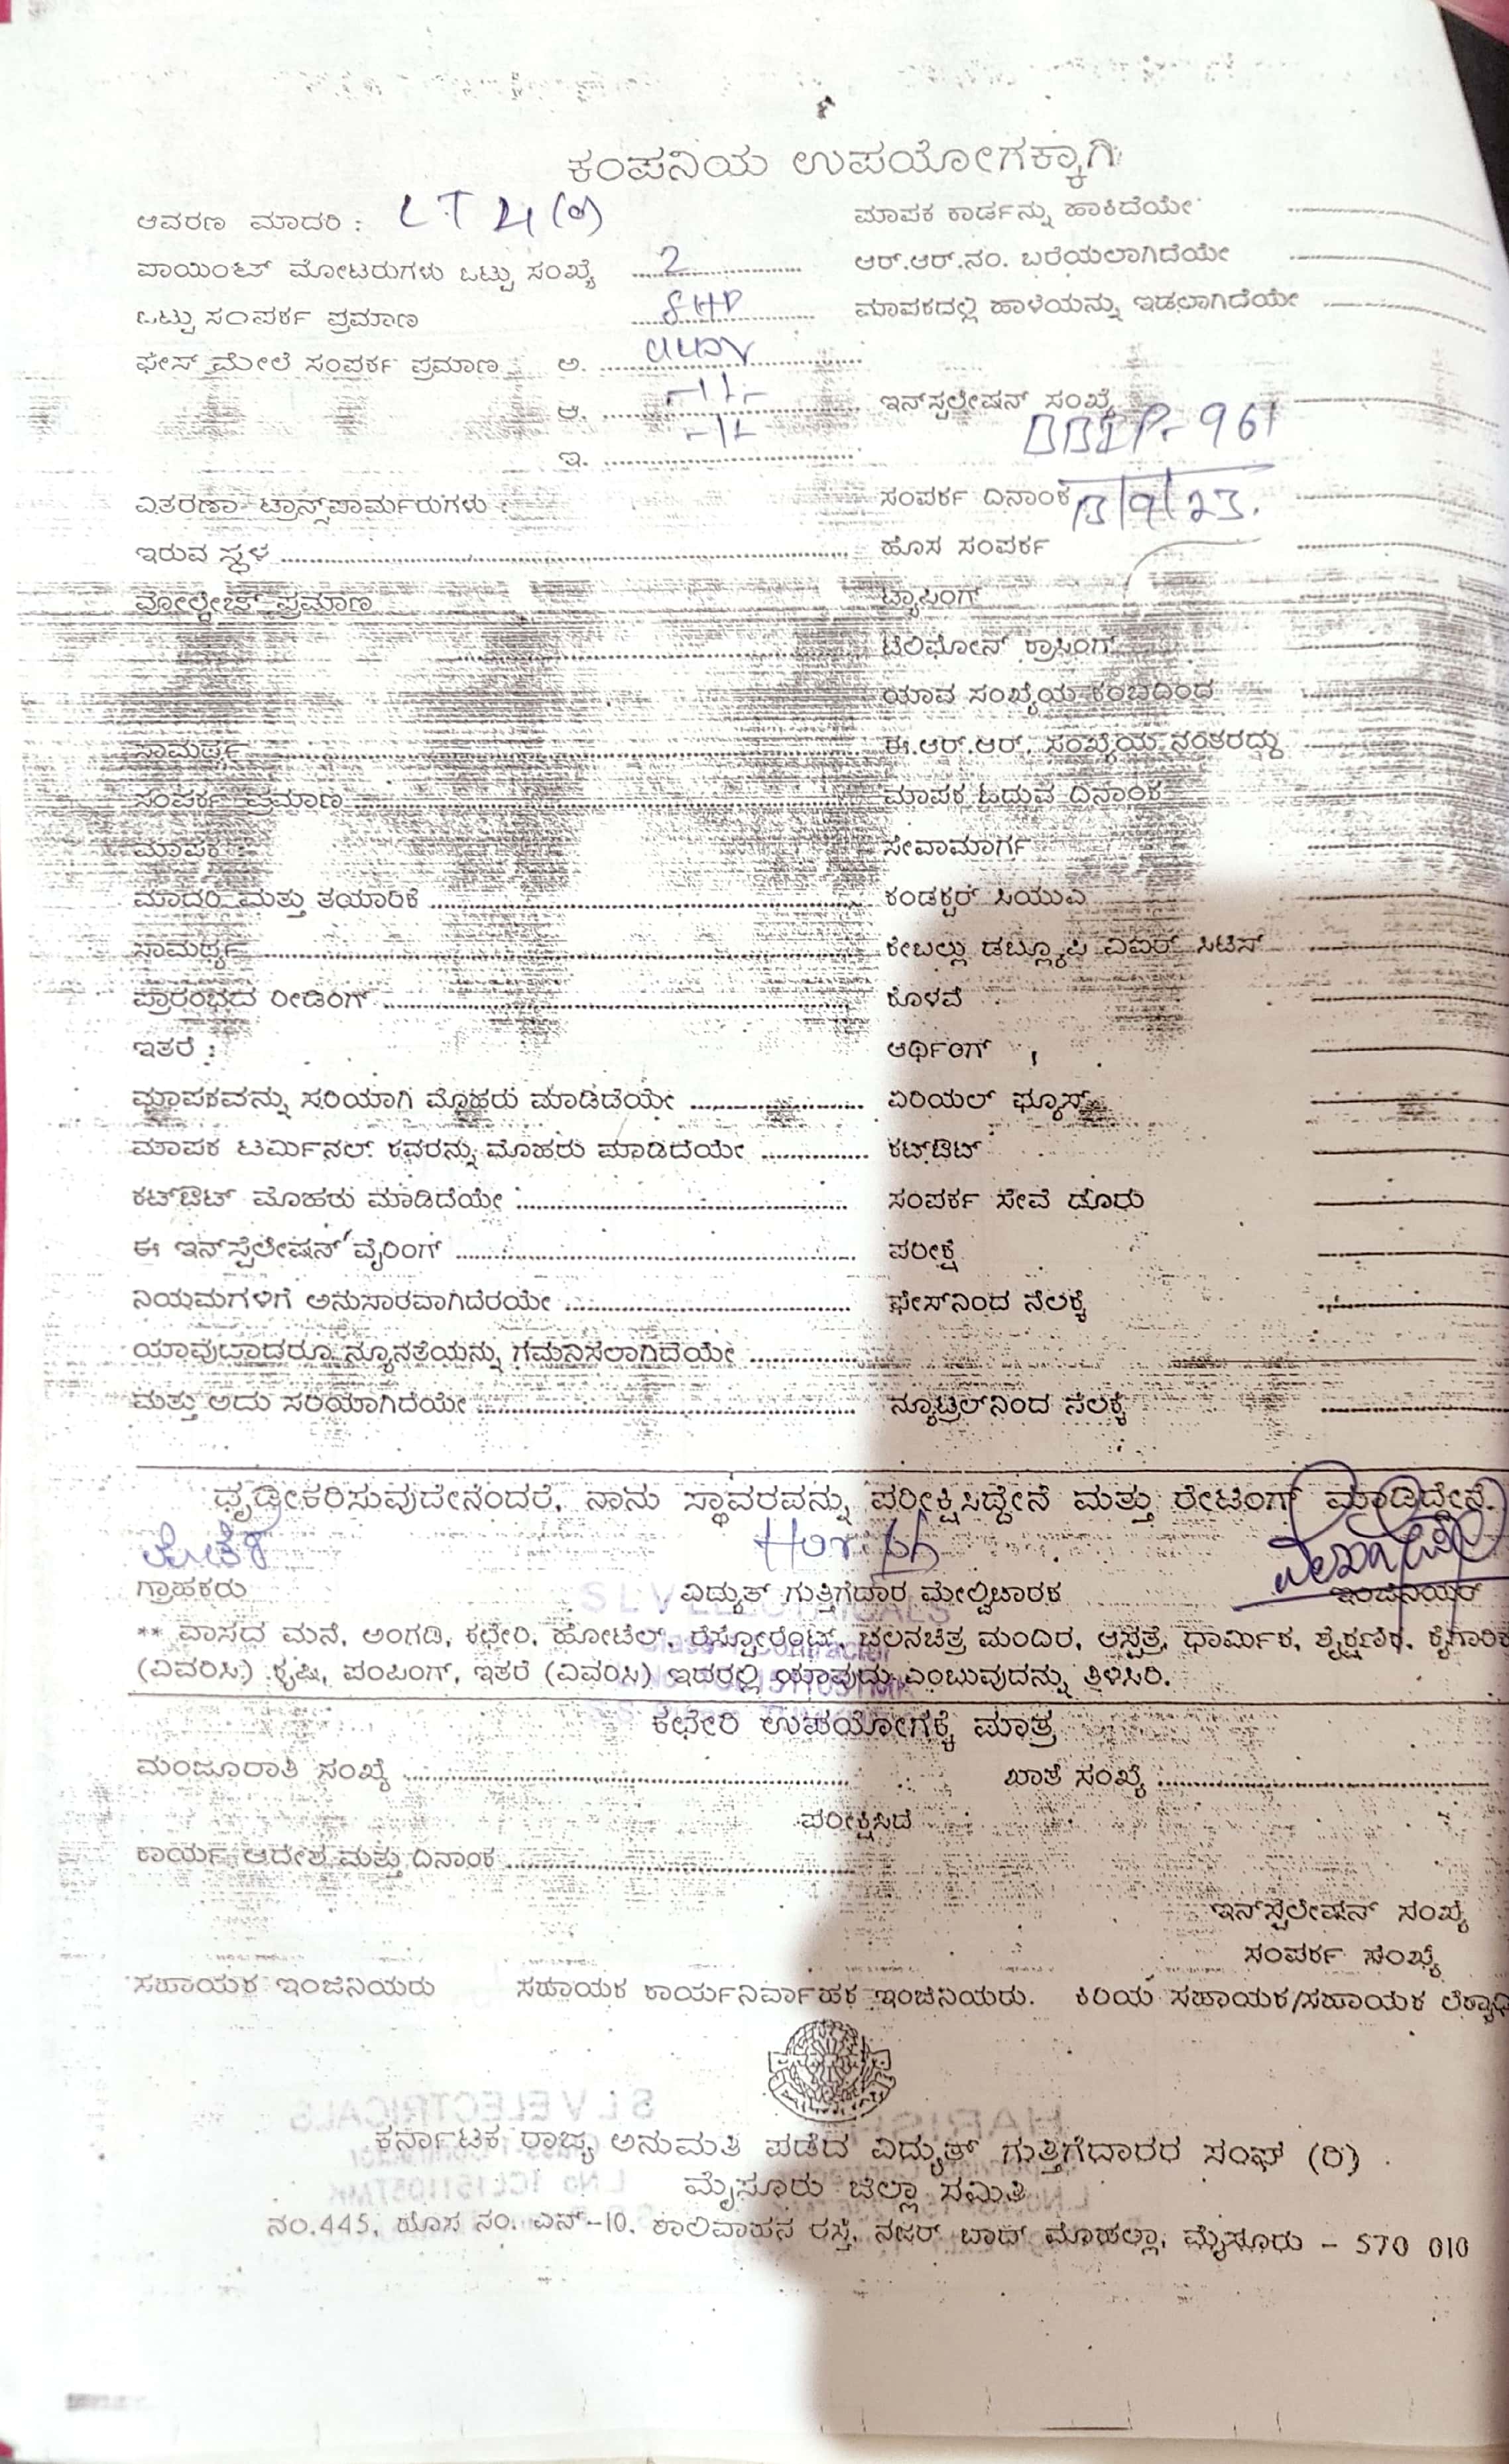 ಕಂಪನಿಯ ಉಪಯೋಗಕ್ಕಾಗಿ
ಆವರಣ ಮಾದರಿ : LT 4(a)
ಪಾಯಿಂಟ್ ಮೋಟರುಗಳು ಒಟ್ಟು ಸಂಖ್ಯೆ 2
ಒಟ್ಟು ಸಂಪರ್ಕ ಪ್ರಮಾಣ 5HP
ಫೇಸ್ ಮೇಲೆ ಸಂಪರ್ಕ ಪ್ರಮಾಣ : ಅ. 440V
ಆ. -11-
ಇ. -11-
ವಿತರಣಾ ಟ್ರಾನ್ಸ್‌ಫಾರ್ಮರುಗಳು :
ಇರುವ ಸ್ಥಳ
ವೋಲ್ಟೇಜ್ ಪ್ರಮಾಣ
ಸಾಮರ್ಥ್ಯ
ಸಂಪರ್ಕ ಪ್ರಮಾಣ
ಮಾಪಕ :
ಮಾದರಿ ಮತ್ತು ತಯಾರಿಕೆ
ಸಾಮರ್ಥ್ಯ
ಪ್ರಾರಂಭದ ರೀಡಿಂಗ್
ಇತರೆ :
ಮಾಪಕವನ್ನು ಸರಿಯಾಗಿ ಮೊಹರು ಮಾಡಿದೆಯೇ
ಮಾಪಕ ಟರ್ಮಿನಲ್ ಕವರನ್ನು ಮೊಹರು ಮಾಡಿದೆಯೇ
ಕಟ್‌ಔಟ್ ಮೊಹರು ಮಾಡಿದೆಯೇ
ಈ ಇನ್‌ಸ್ಟೆಲೇಷನ್ ವೈರಿಂಗ್
ನಿಯಮಗಳಿಗೆ ಅನುಸಾರವಾಗಿದೆರಯೇ
ಯಾವುದಾದರೂ ನ್ಯೂನತೆಯನ್ನು ಗಮನಿಸಲಾಗಿದೆಯೇ
ಮತ್ತು ಅದು ಸರಿಯಾಗಿದೆಯೇ
ಮಾಪಕ ಕಾರ್ಡನ್ನು ಹಾಕಿದೆಯೇ
ಆರ್.ಆರ್.ನಂ. ಬರೆಯಲಾಗಿದೆಯೇ
ಮಾಪಕದಲ್ಲಿ ಹಾಳೆಯನ್ನು ಇಡಲಾಗಿದೆಯೇ
ಇನ್‌ಸ್ಟಲೇಷನ್ ಸಂಖ್ಯೆ
961
ಸಂಪರ್ಕ ದಿನಾಂಕ 13/9/23.
ಹೊಸ ಸಂಪರ್ಕ
ಟ್ಯಾಪಿಂಗ್
ಟೆಲಿಫೋನ್ ಕ್ರಾಸಿಂಗ್
ಯಾವ ಸಂಖ್ಯೆಯ ಕಂಬದಿಂದ
ಈ.ಆರ್.ಆರ್. ಸಂಖ್ಯೆಯ ನಂತರದ್ದು
ಮಾಪಕ ಓದುವ ದಿನಾಂಕ
ಸೇವಾಮಾರ್ಗ
ಕಂಡಕ್ಟರ್ ಸಿಯುಎ
ಕೇಬಲ್ಲು ಡಬ್ಲ್ಯೂಪಿ ವಿಐಆರ್ ಸಿಟಿಸ್
ಕೊಳವೆ
ಆರ್ಥಿಂಗ್
ಏರಿಯಲ್ ಫ್ಯೂಸ್
ಕಟ್‌ಔಟ್
ಸಂಪರ್ಕ ಸೇವೆ ಡೊರು
ಪರೀಕ್ಷೆ
ಫೇಸ್‌ನಿಂದ ನೆಲಕ್ಕೆ
ನ್ಯೂಟ್ರಲ್‌ನಿಂದ ನೆಲಕ್ಕೆ
ಧೃಡೀಕರಿಸುವುದೇನೆಂದರೆ, ನಾನು ಸ್ಥಾವರವನ್ನು ಪರೀಕ್ಷಿಸಿದ್ದೇನೆ ಮತ್ತು ರೇಟಿಂಗ್ ಮಾಡಿದ್ದೇನೆ.
Harish
ಗ್ರಾಹಕರು ವಿದ್ಯುತ್ ಗುತ್ತಿಗೆದಾರ ಮೇಲ್ವಿಚಾರಕ ಇಂಜಿನಿಯರ್
S L V ELECTRICALS
** ವಾಸದ ಮನೆ, ಅಂಗಡಿ, ಕಛೇರಿ, ಹೋಟೆಲ್, ರೆಸ್ಟೋರೆಂಟ್, ಚಲನಚಿತ್ರ ಮಂದಿರ, ಆಸ್ಪತ್ರೆ, ಧಾರ್ಮಿಕ, ಶೈಕ್ಷಣಿಕ, ಕೈಗಾರಿಕ
(ವಿವರಿಸಿ) ಕೃಷಿ, ಪಂಪಿಂಗ್, ಇತರೆ (ವಿವರಿಸಿ) ಇದರಲ್ಲಿ ಯಾವುದು ಎಂಬುವುದನ್ನು ತಿಳಿಸಿರಿ.
ಕಛೇರಿ ಉಪಯೋಗಕ್ಕೆ ಮಾತ್ರ
ಮಂಜೂರಾತಿ ಸಂಖ್ಯೆ ಖಾತೆ ಸಂಖ್ಯೆ
ಪರೀಕ್ಷಿಸಿದೆ
ಕಾರ್ಯ ಆದೇಶ ಮತ್ತು ದಿನಾಂಕ
ಇನ್‌ಸ್ಟಲೇಷನ್ ಸಂಖ್ಯೆ
ಸಂಪರ್ಕ ಸಂಖ್ಯೆ
ಸಹಾಯಕ ಇಂಜಿನಿಯರು ಸಹಾಯಕ ಕಾರ್ಯನಿರ್ವಾಹಕ ಇಂಜಿನಿಯರು. ಕಿರಿಯ ಸಹಾಯಕ/ಸಹಾಯಕ
ಕರ್ನಾಟಕ ರಾಜ್ಯ ಅನುಮತಿ ಪಡೆದ ವಿದ್ಯುತ್ ಗುತ್ತಿಗೆದಾರರ ಸಂಘ (ರಿ)
ಮೈಸೂರು ಜಿಲ್ಲಾ ಸಮಿತಿ
ನಂ.445, ಹೊಸ ನಂ. ಎನ್-10, ಶಾಲಿವಾಹನ ರಸ್ತೆ, ನಜರ್ ಬಾದ್ ಮೊಹಲ್ಲಾ, ಮೈಸೂರು - 570 010